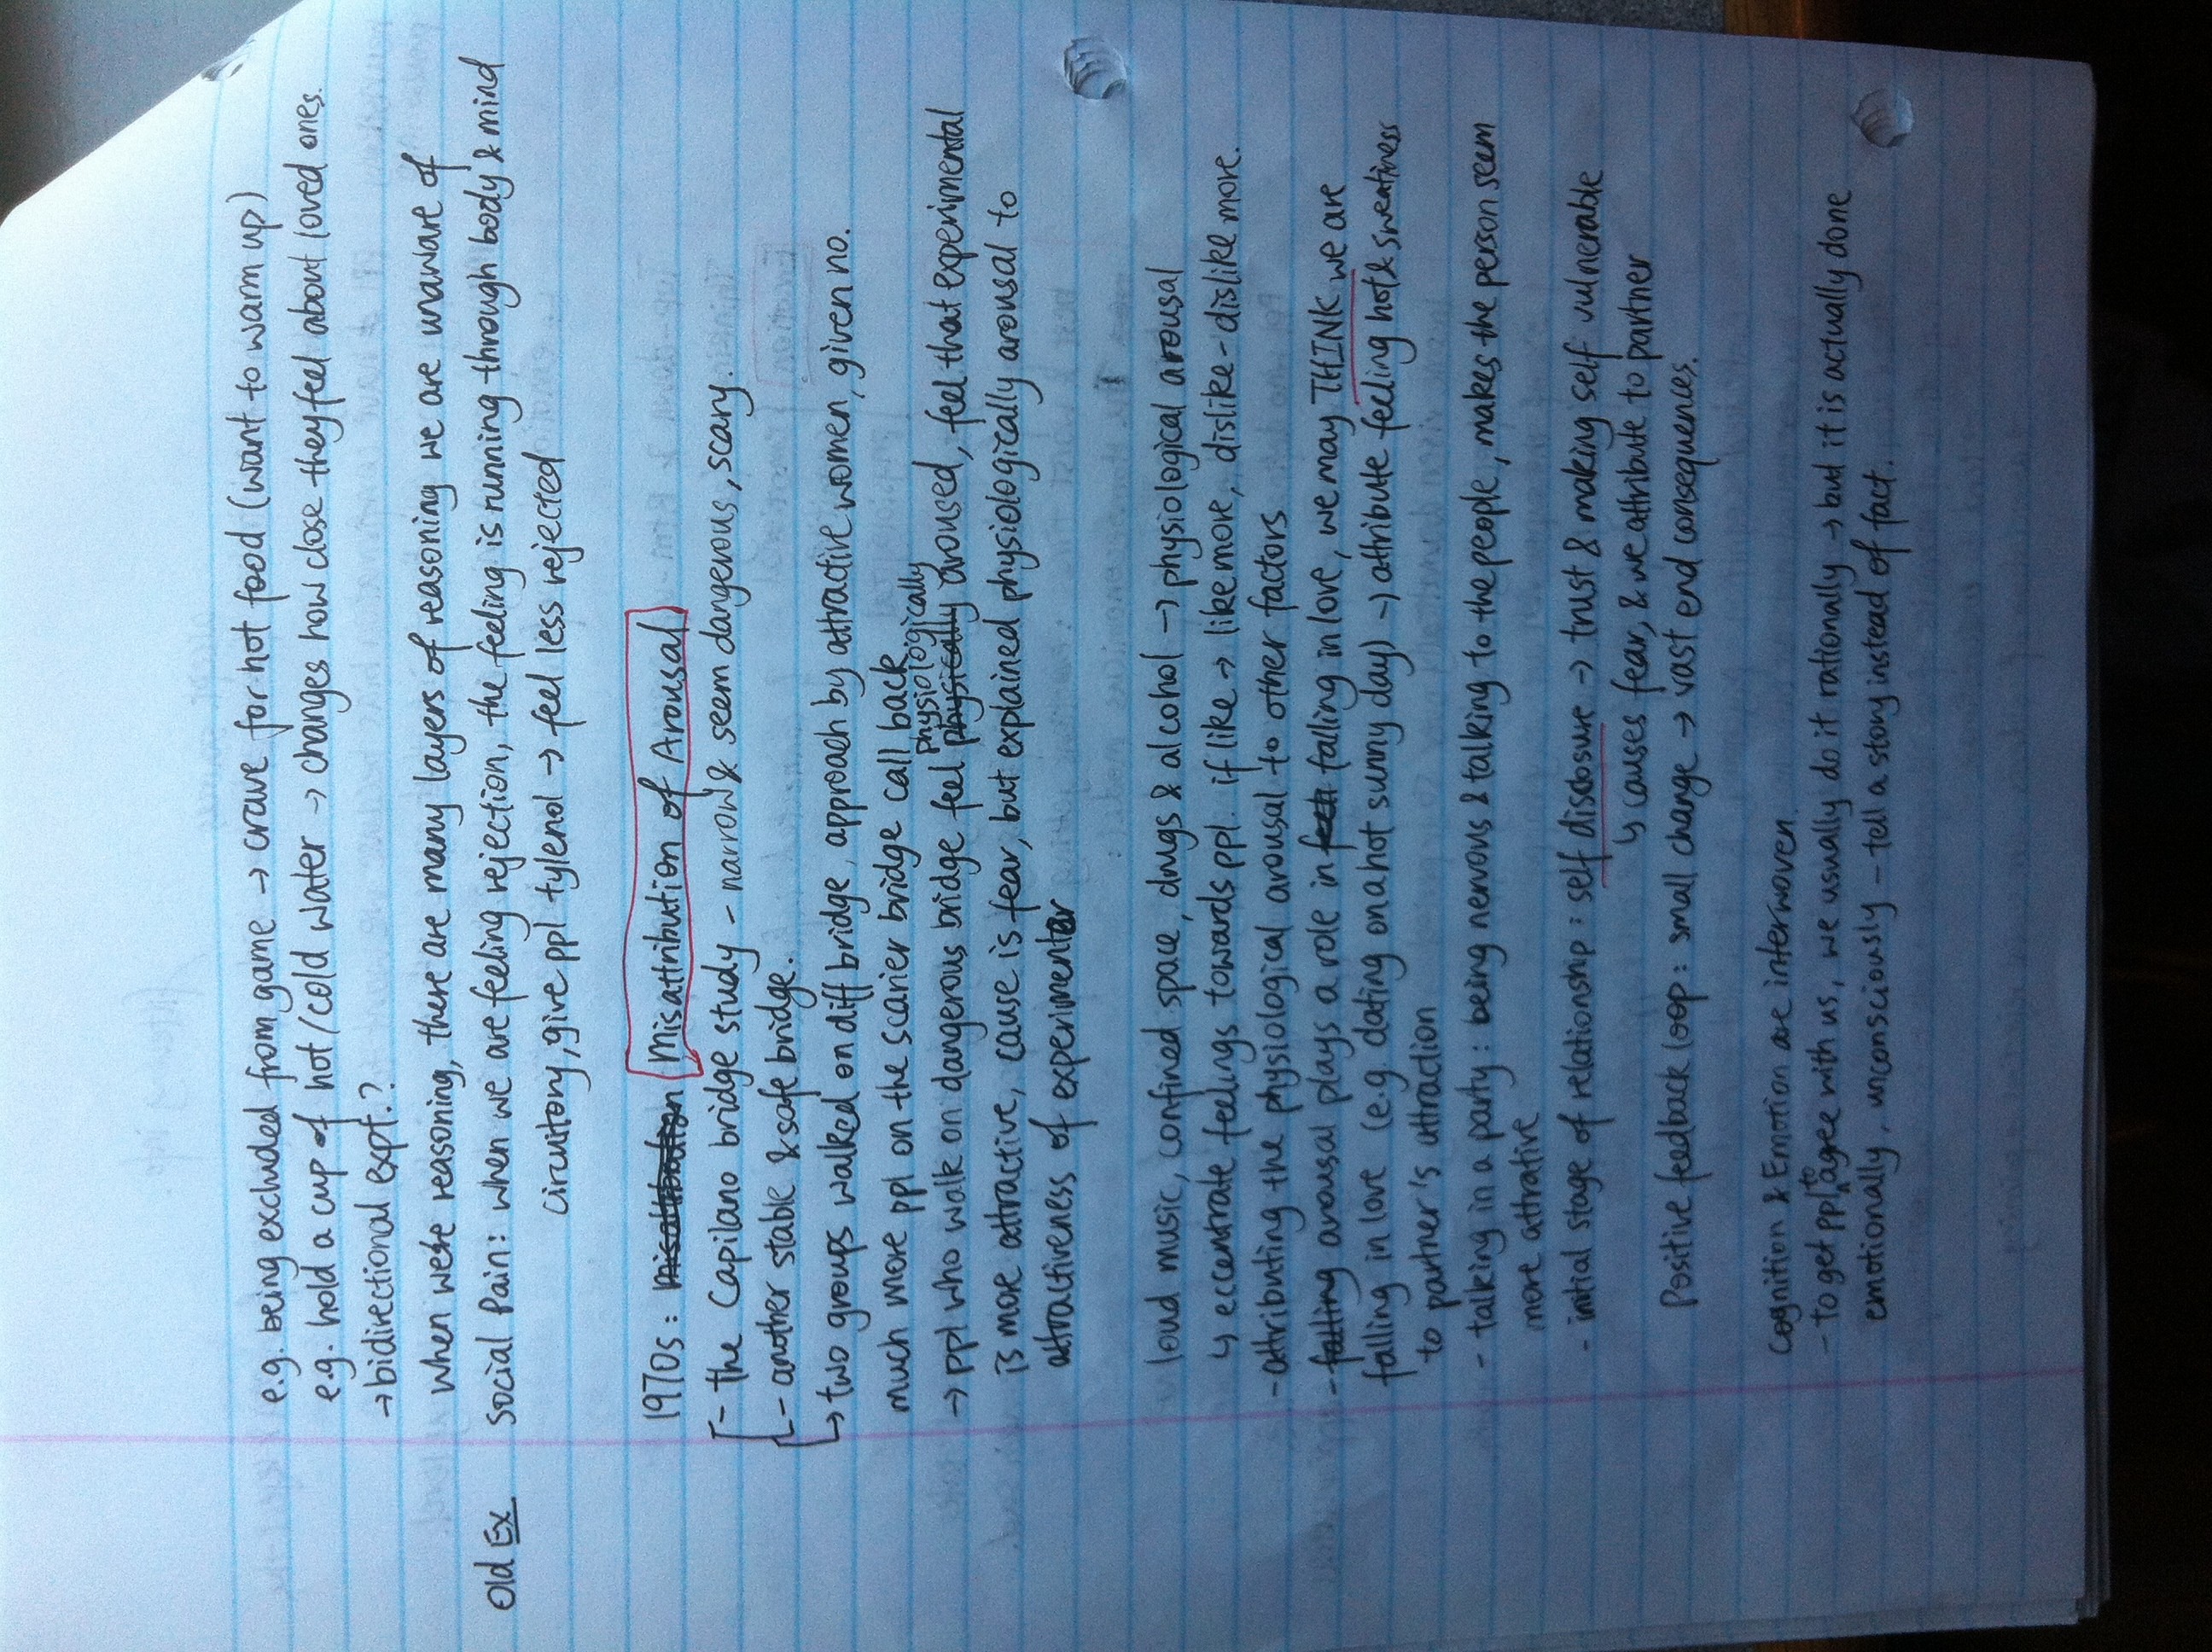 e.g. being excluded from game → crave for hot food (want to warm up)
e.g. hold a cup of hot/cold water → changes how close they feel about loved ones.
→ bidirectional expt.?
when we're reasoning, there are many layers of reasoning we are unaware of
Old Ex Social Pain: when we are feeling rejection, the feeling is running through body & mind
circuitory, give ppl tylenol → feel less rejected
1970s: Misattribution Misattribution of Arousal
- the Capilano bridge study - narrow & seem dangerous, scary.
- another stable & safe bridge.
↳ two groups walked on diff bridge, approach by attractive women, given no.
much more ppl on the scarier bridge call back
physiologically
→ ppl who walk on dangerous bridge feel physically aroused, feel that experimental
is more attractive, cause is fear, but explained physiologically arousal to
attractiveness of experimenter
loud music, confined space, drugs & alcohol → physiological arousal
↳ eccentrate feelings towards ppl. if like → like more, dislike - dislike more.
- attributing the physiological arousal to other factors
- falling arousal plays a role in feeli falling in love, we may THINK we are
falling in love (e.g. dating on a hot sunny day) → attribute feeling hot & sweatiness
to partner's attraction
- talking in a party: being nervous & talking to the people, makes the person seem
more attrative
- initial stage of relationship: self disclosure → trust & making self vulnerable
↳ causes fear, & we attribute to partner
Positive feedback loop: small change → vast end consequences.
Cognition & Emotion are interwoven.
- to get ppl to agree with us, we usually do it rationally → but it is actually done
emotionally, unconsciously - tell a story instead of fact.